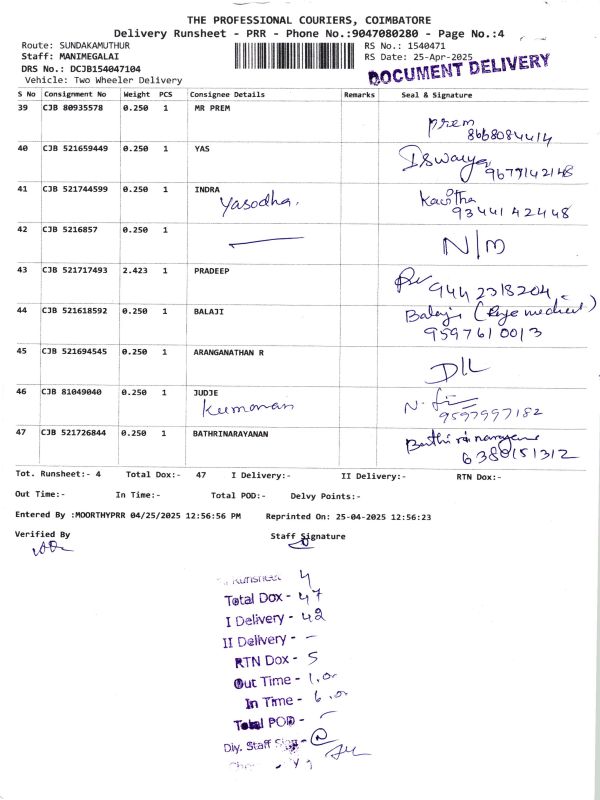 THE PROFESSIONAL COURIERS, COIMBATORE
Delivery Runsheet - PRR - Phone No.:9047080280 - Page No.:4
Route: SUNDAKAMUTHUR
RS No.: 1540471
Staff: MANIMEGALAI
RS Date: 25-Apr-2025
DRS No.: DCJB154047104
Vehicle: Two Wheeler Delivery
DOCUMENT DELIVERY
S No Consignment No Weight PCS Consignee Details Remarks Seal & Signature
39 CJB 80935578 0.250 1 MR PREM
Prem
8668084414
40 CJB 521659449 0.250 1 YAS
Iswarya
9677142148
41 CJB 521744599 0.250 1 INDRA
Yasodha.
Kavitha
9344142448
42 CJB 5216857 0.250 1
N/M
43 CJB 521717493 2.423 1 PRADEEP
944 2318204
44 CJB 521618592 0.250 1 BALAJI
Balaji
9597610013
45 CJB 521694545 0.250 1 ARANGANATHAN R
D/L
46 CJB 81049040 0.250 1 JUDJE
Kumanan
9597997182
47 CJB 521726844 0.250 1 BATHRINARAYANAN
6380151312
Tot. Runsheet:- 4 Total Dox:- 47 I Delivery:- II Delivery:- RTN Dox:-
Out Time:- In Time:- Total POD:- Delvy Points:-
Entered By :MOORTHYPRR 04/25/2025 12:56:56 PM Reprinted On: 25-04-2025 12:56:23
Verified By
Staff Signature
Runsheet 4
Total Dox - 47
I Delivery - 42
II Delivery - –
RTN Dox - 5
Out Time - 1.00
In Time - 6.00
Total POD - –
Dly. Staff Sign -